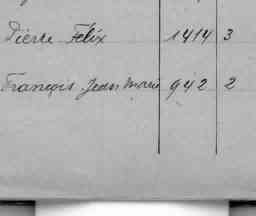 Pierre Félix 1414 3
François Jean Marie 942 2